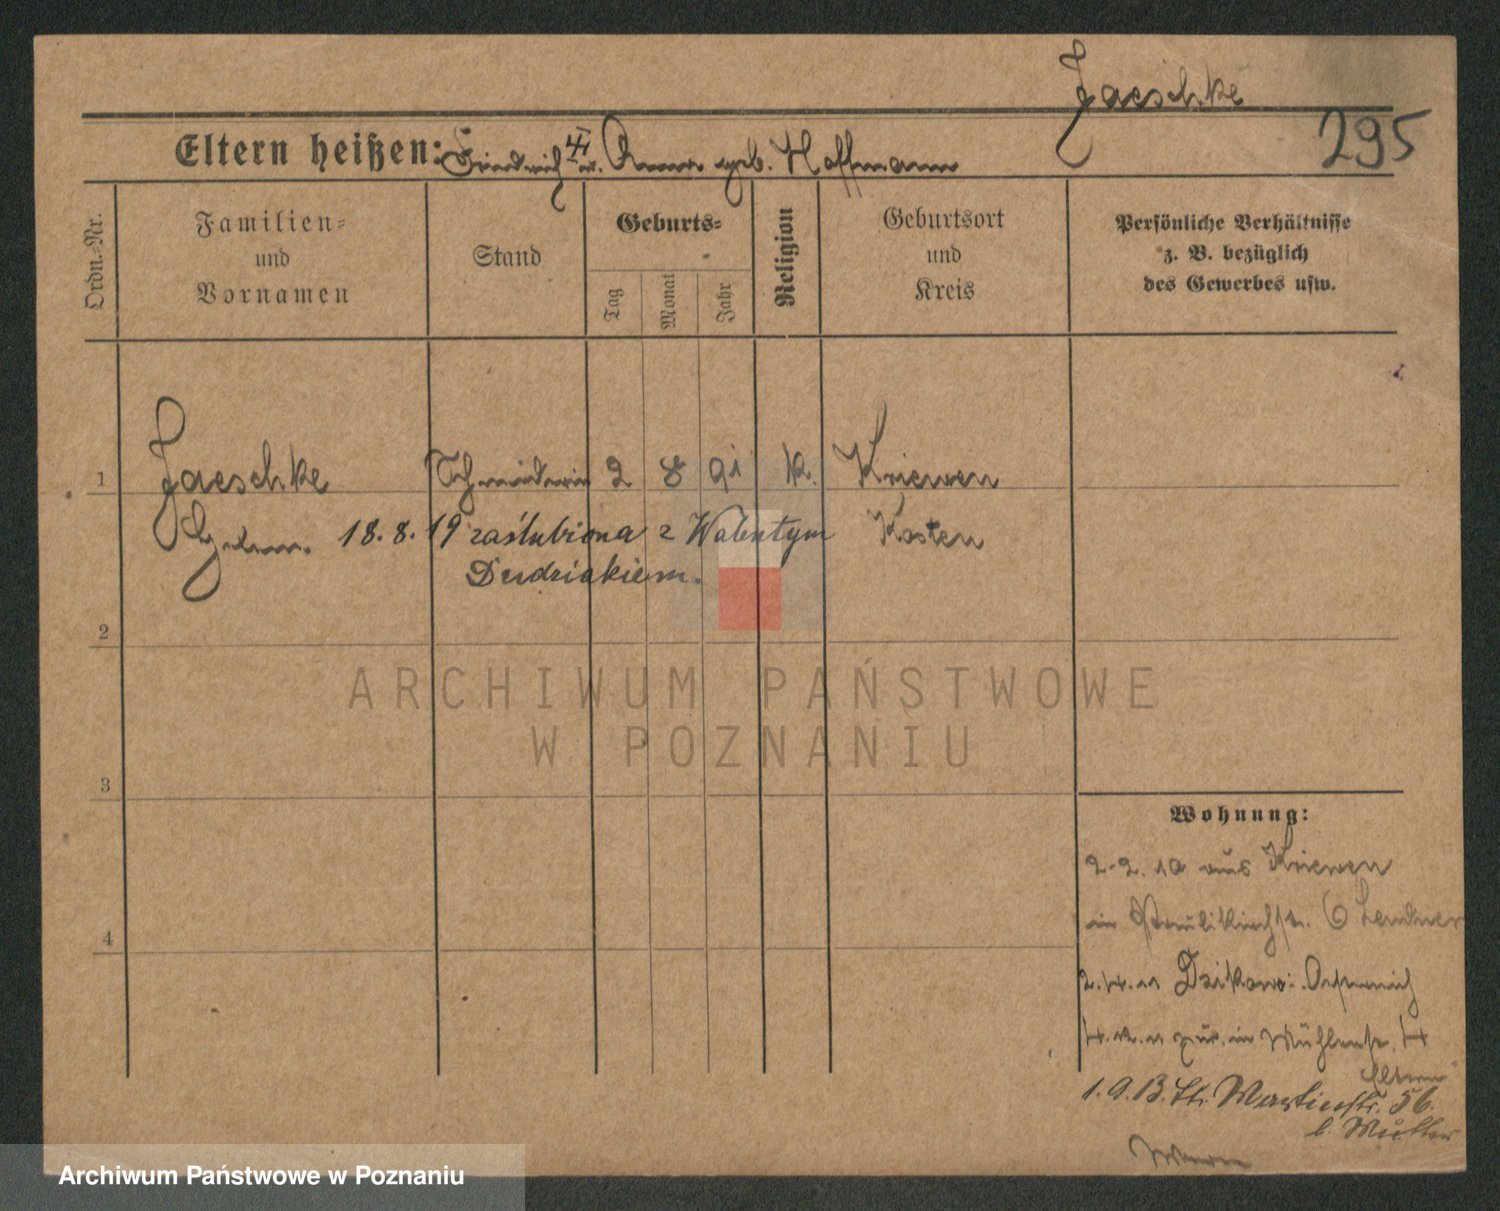 Jaeschke
295
Eltern heißen: Friedrich u. Anna geb. Hoffmann
Ordn.-Nr.
Familien-
und
Vornamen
Stand
Geburts-
Tag
Monat
Jahr
Religion
Geburtsort
und
Kreis
Persönliche Verhältnisse
z. B. bezüglich
des Gewerbes usw.
1
Jaeschke
Schneiderin
2
8
91
k.
Kriewen
18.8.19 zaślubiona z Walentym
Kosten
Dudziakiem.
2
3
4
Wohnung:
2.2.10 aus Kriewen
in Paulikirchstr. 6
2.4.11
4. zur. in Mühlenstr. 4
Eltern
1.9.13. St. Martinstr. 56.
b. Mutter
ARCHIWUM PAŃSTWOWE
W POZNANIU
Archiwum Państwowe w Poznaniu